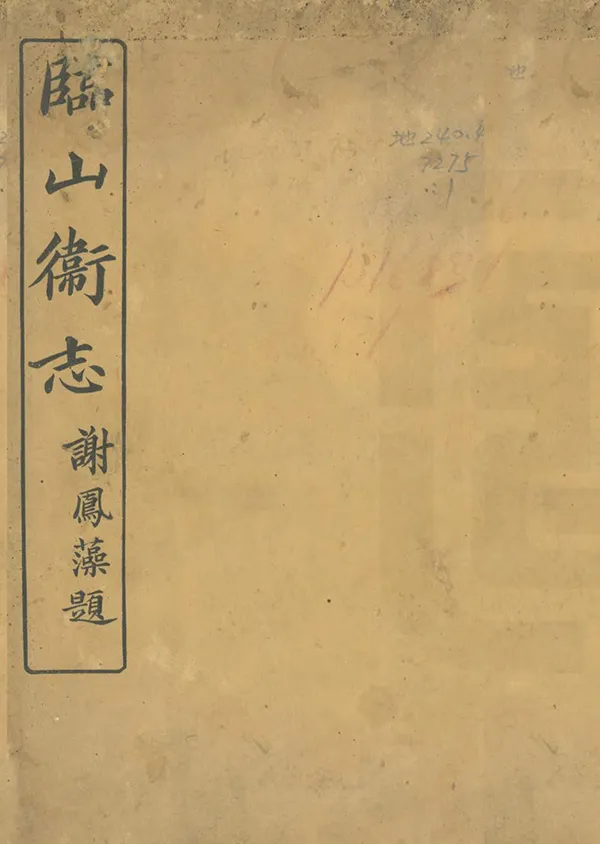 臨山衞志
謝鳳藻題
地240.4
7275
:1